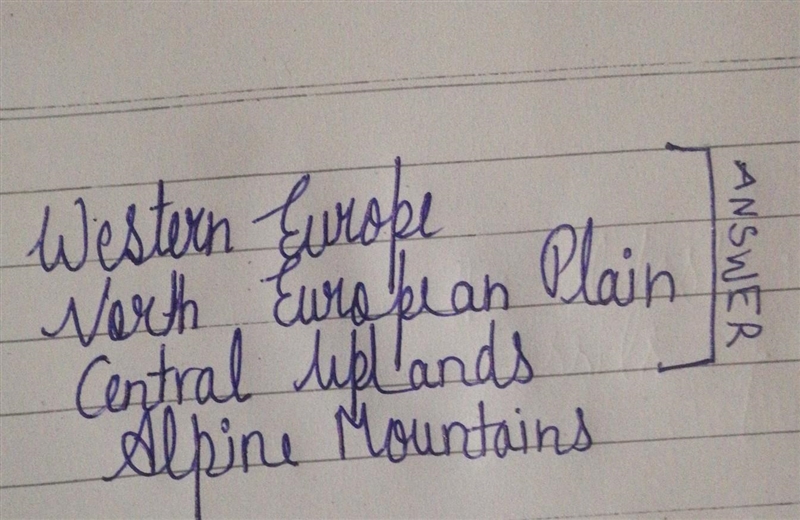 Western Europe
North European Plain
Central Uplands
Alpine Mountains
ANSWER